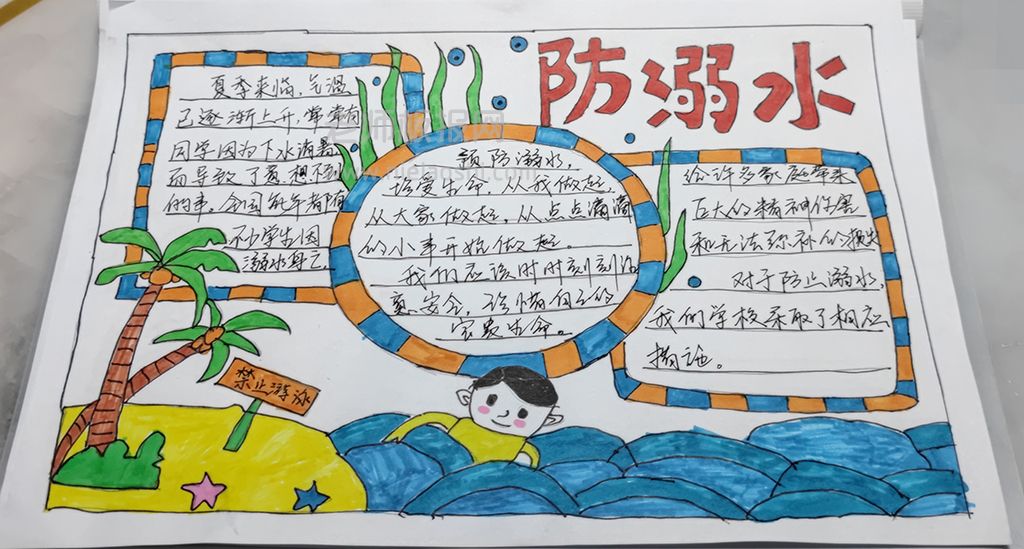 防溺水
夏季来临，气温
已逐渐上升，常常有
同学因为下水消暑
而导致了意想不到
的事。全国每年都有
不少学生因
溺水身亡
预防溺水，
珍爱生命，从我做起，
从大家做起，从点点滴滴
的小事开始做起。
我们应该时时刻刻注
意安全，珍惜自己的
宝贵生命。
给许多家庭带来
巨大的精神伤害
和无法弥补的损失
对于防止溺水，
我们学校采取了相应
措施。
禁止游泳